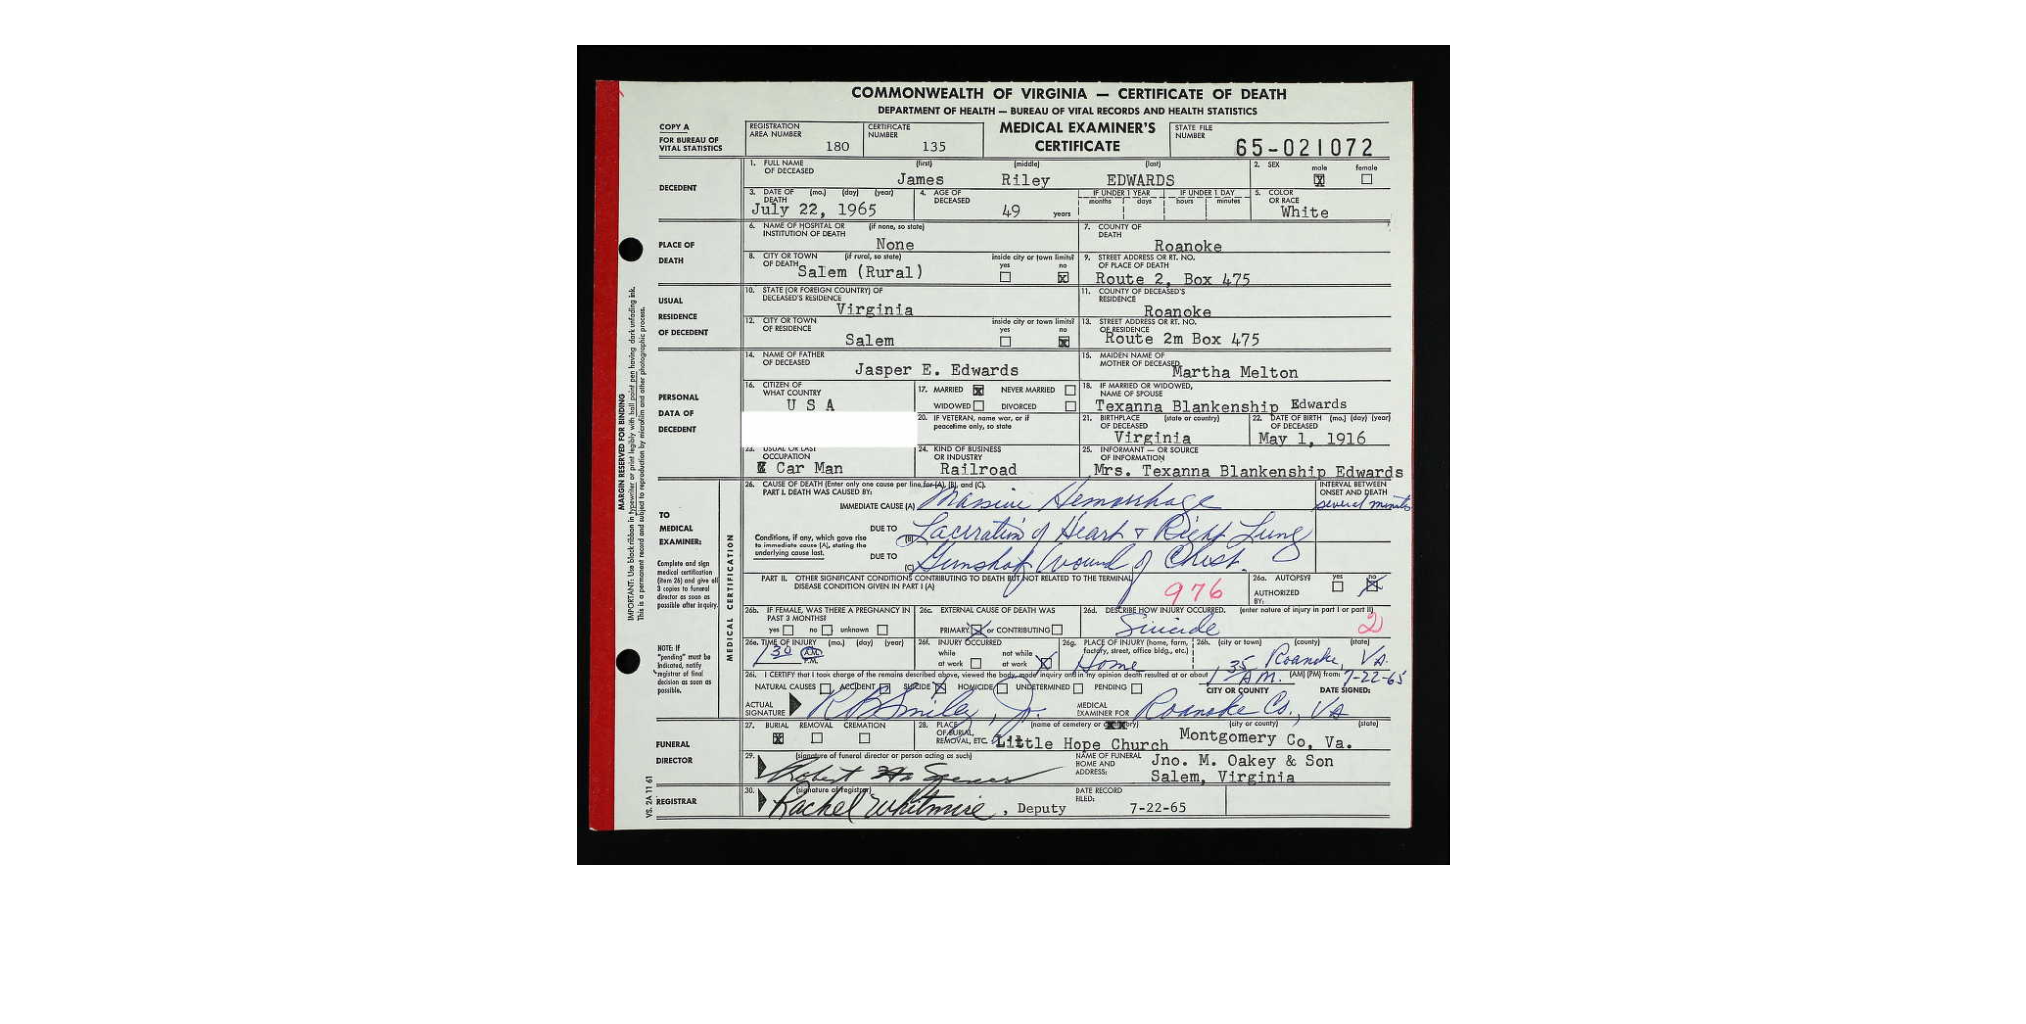 COMMONWEALTH OF VIRGINIA — CERTIFICATE OF DEATH
DEPARTMENT OF HEALTH — BUREAU OF VITAL RECORDS AND HEALTH STATISTICS
COPY A
FOR BUREAU OF
VITAL STATISTICS
REGISTRATION
AREA NUMBER
180
CERTIFICATE
NUMBER
135
MEDICAL EXAMINER'S
CERTIFICATE
STATE FILE
NUMBER
65-021072
DECEDENT
1. FULL NAME OF DECEASED (first) (middle) (last)
James Riley EDWARDS
2. SEX male female
X
3. DATE OF DEATH (mo.) (day) (year)
July 22, 1965
4. AGE OF DECEASED
49 years
IF UNDER 1 YEAR months days
IF UNDER 1 DAY hours minutes
5. COLOR OR RACE
White
PLACE OF
DEATH
6. NAME OF HOSPITAL OR INSTITUTION OF DEATH (if none, so state)
None
7. COUNTY OF DEATH
Roanoke
8. CITY OR TOWN OF DEATH (if rural, so state)
Salem (Rural)
inside city or town limits?
yes no
X
9. STREET ADDRESS OR RT. NO. OF PLACE OF DEATH
Route 2, Box 475
USUAL
RESIDENCE
OF DECEDENT
10. STATE (OR FOREIGN COUNTRY) OF DECEASED'S RESIDENCE
Virginia
11. COUNTY OF DECEASED'S RESIDENCE
Roanoke
12. CITY OR TOWN OF RESIDENCE
Salem
inside city or town limits?
yes no
X
13. STREET ADDRESS OR RT. NO. OF RESIDENCE
Route 2m Box 475
PERSONAL
DATA OF
DECEDENT
14. NAME OF FATHER OF DECEASED
Jasper E. Edwards
15. MAIDEN NAME OF MOTHER OF DECEASED
Martha Melton
16. CITIZEN OF WHAT COUNTRY
U S A
17. MARRIED X NEVER MARRIED
WIDOWED DIVORCED
18. IF MARRIED OR WIDOWED, NAME OF SPOUSE
Texanna Blankenship Edwards
20. IF VETERAN, name war, or if peacetime only, so state
21. BIRTHPLACE OF DECEASED (state or country)
Virginia
22. DATE OF BIRTH OF DECEASED (mo.) (day) (year)
May 1, 1916
23. USUAL OR LAST OCCUPATION
Car Man
24. KIND OF BUSINESS OR INDUSTRY
Railroad
25. INFORMANT — OR SOURCE OF INFORMATION
Mrs. Texanna Blankenship Edwards
MARGIN RESERVED FOR BINDING
IMPORTANT: Use black ribbon in typewriter or print legibly with ball point pen having dark unfading ink.
This is a permanent record and subject to reproduction by microfilm and other photographic process.
TO
MEDICAL
EXAMINER:
Complete and sign
medical certification
(item 26) and give all
3 copies to funeral
director as soon as
possible after inquiry.
NOTE: If
"pending" must be
indicated, notify
registrar of final
decision as soon as
possible.
MEDICAL CERTIFICATION
26. CAUSE OF DEATH (Enter only one cause per line for (A), (B), and (C).
PART I. DEATH WAS CAUSED BY:
IMMEDIATE CAUSE (A) Massive Hemorrhage
INTERVAL BETWEEN ONSET AND DEATH
several minutes
Conditions, if any, which gave rise
to immediate cause (A), stating the
underlying cause last.
DUE TO (B) Laceration of Heart & Right Lung
DUE TO (C) Gunshot Wound of Chest
PART II. OTHER SIGNIFICANT CONDITIONS CONTRIBUTING TO DEATH BUT NOT RELATED TO THE TERMINAL
DISEASE CONDITION GIVEN IN PART I (A)
976
26a. AUTOPSY? yes no
X
AUTHORIZED BY:
26b. IF FEMALE, WAS THERE A PREGNANCY IN PAST 3 MONTHS?
yes no unknown
26c. EXTERNAL CAUSE OF DEATH WAS
PRIMARY X or CONTRIBUTING
26d. DESCRIBE HOW INJURY OCCURRED. (enter nature of injury in part I or part II)
Suicide
2
26e. TIME OF INJURY (mo.) (day) (year)
1 30 A.M. P.M.
26f. INJURY OCCURRED
while at work not while at work X
26g. PLACE OF INJURY (home, farm, factory, street, office bldg., etc.)
Home
26h. (city or town) (county) (state)
Roanoke, Va.
26i. I CERTIFY that I took charge of the remains described above, viewed the body, made inquiry and in my opinion death resulted at or about 1 35 A.M. (AM) (PM) from:
7-22-65
NATURAL CAUSES ACCIDENT SUICIDE X HOMICIDE UNDETERMINED PENDING
CITY OR COUNTY DATE SIGNED:
ACTUAL SIGNATURE R B Smiley, Jr.
MEDICAL EXAMINER FOR Roanoke Co., Va
FUNERAL
DIRECTOR
27. BURIAL REMOVAL CREMATION
X
28. PLACE OF BURIAL, REMOVAL, ETC. (name of cemetery or
(city or county) (state)
Little Hope Church Montgomery Co, Va.
29. (signature of funeral director or person acting as such)
Robert Spencer
NAME OF FUNERAL HOME AND ADDRESS:
Jno. M. Oakey & Son
Salem, Virginia
REGISTRAR
30. (signature of registrar)
Rachel Whitmire, Deputy
DATE RECORD FILED:
7-22-65
VS. 2A 11 61